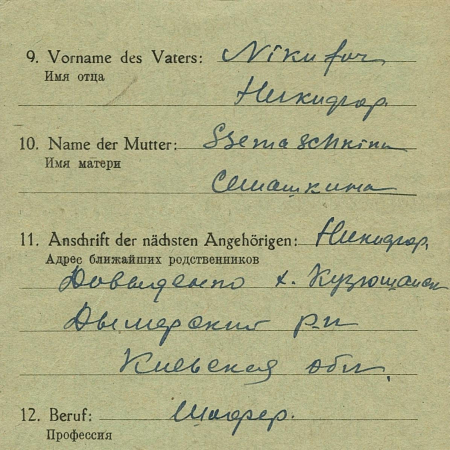 9. Vorname des Vaters: Nikifor
Имя отца
Никифор.
10. Name der Mutter: Szemaschkina
Имя матери
Семашкина
11. Anschrift der nächsten Angehörigen: Никифор.
Адрес ближайших родственников
Довыденко х.
Дымерский р-н
Киевская обл.
12. Beruf: Шофер.
Профессия